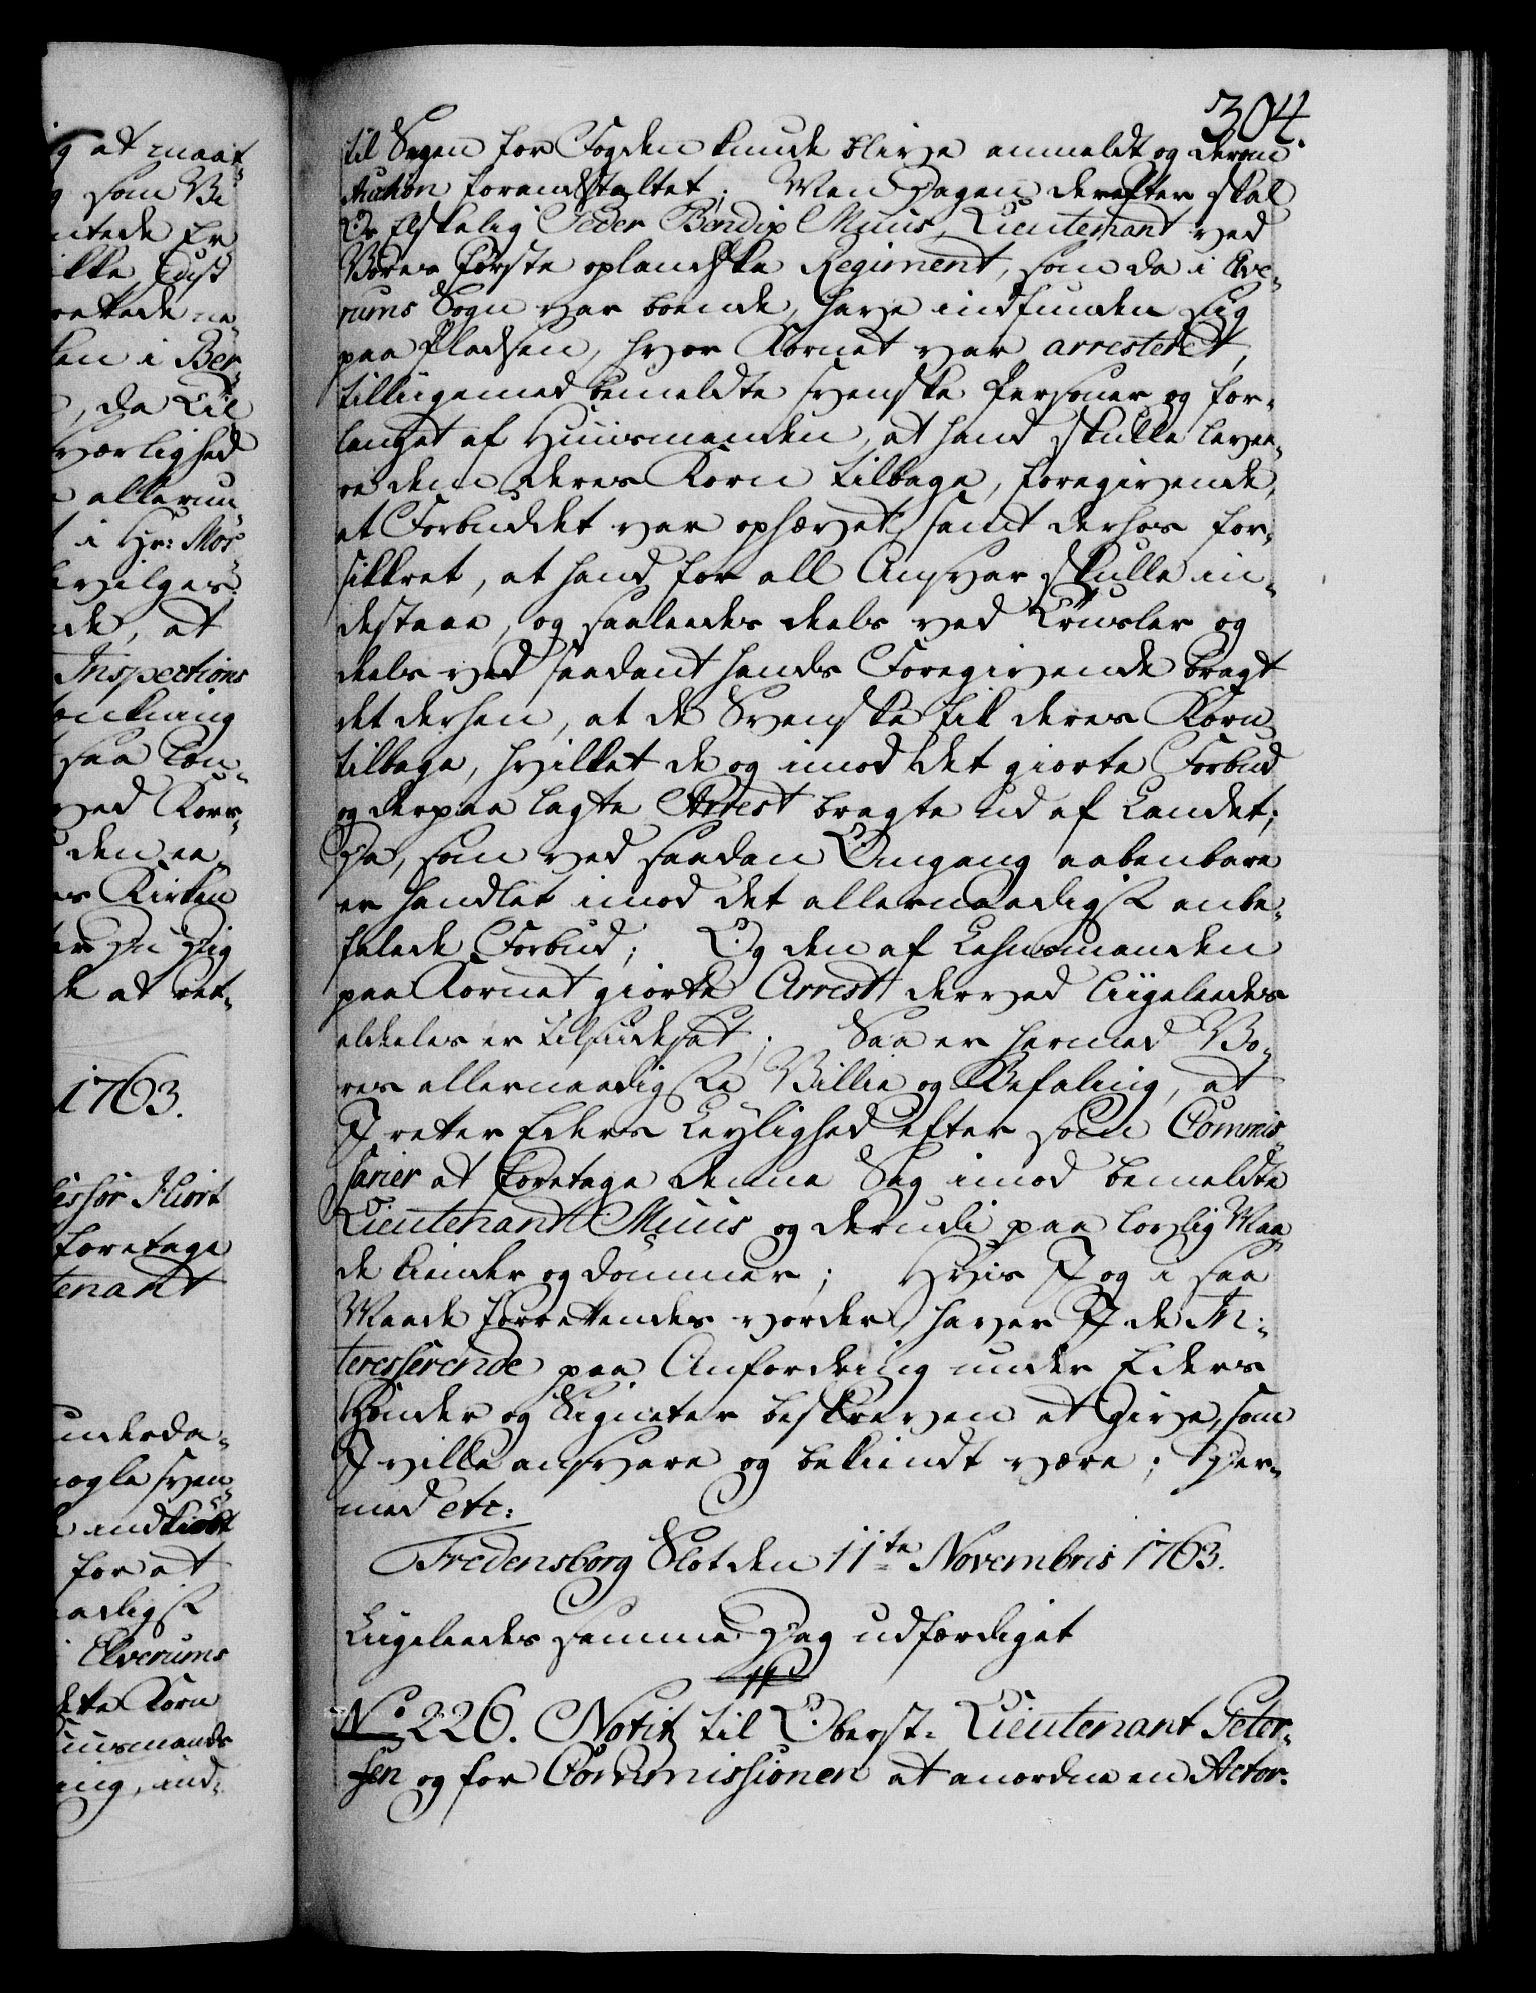 304.
til Sagen for Fogden kunde blive anmeldt og derom
Auction foranstaltet; Men Dagen derefter skal
Os Elskelig Peder Bendix Muus, Lieutenant ved
Vores første oplandske Regiment, som da i Elve-
rums Sogn var boende, have indfunden sig
paa Pladsen, hvor Kornet var arresteret,
tilligemed bemeldte svenske Personer og for-
langet af Huusmanden, at hand skulle leve-
re dem deres Korn tilbage, foregivende,
at Forbuddet var ophævet, samt derhos for-
sikkret, at hand for all Ansvar skulle in-
destaae, og saaleedes deels ved Trusler og
deels ved saadant hands Foregivende bragt
det derhen, at de Svenske fik deres Korn
tilbage, hvilket de og imod det giorte Forbud
og derpaa lagte Arrest bragte ud af Landet;
Da, som ved saadan Omgang aabenbare
er handlet imod det allernaadigst anbe-
falede Forbud; Og den af Lehnsmanden
paa Kornet giorte Arrest derved liigeleedes
aldeeles er tilsidesat; Saa er hermed Vo-
res allernaadigste Villie og Befaling, at
I retter Eders Leylighed efter som Commis-
sarier at foretage denne Sag imod bemeldte
Lieutenant Muus og derudi paa lovlig Maa-
de kiender og dømmer; Hvis I og i saa
Maade forrettendes vorder, haver I de In-
teresserende paa Anfordring under Eders
Hænder og Signeter beskreven at give, som
I ville ansvare og bekiendt være; Der-
med etc:
Fredensborg Slot den 11te Novembris 1763.
Liigeleedes samme Dag udfærdiget
No 226. Notitz til Oberst-Lieutenant Peter-
sen og for Commissionen at anordne en Actor.